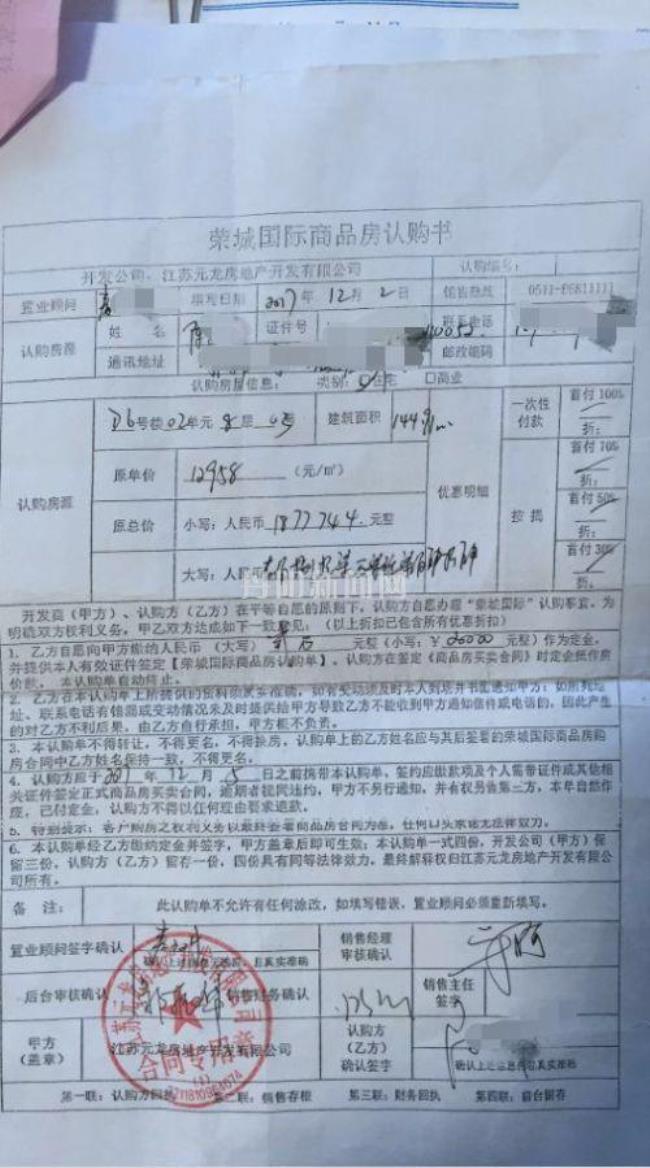 荣城国际商品房认购书
开发公司：江苏元龙房地产开发有限公司 认购编号：
置业顾问 填写日期 2017年 12月 2日 销售热线 0511-86811111
认购房源 姓 名 证件号 联系电话
通讯地址 邮政编码
认购房屋信息： 类别： 住宅 口商业
认购房源 D6号楼02单元8层 号 建筑面积 144.91㎡ 优惠明细 一次性付款 首付100%
折：
原单价 12958 (元/㎡) 按揭 首付70%
折：
原总价 小写：人民币 1877744 元整 首付50%
折：
大写：人民币 首付30%
折：
丹阳新闻网
开发商（甲方）、认购方（乙方）在平等自愿的原则下，认购方自愿办理“荣城国际”认购事宜，为
明确双方权利义务，甲乙双方达成如下一致意见：（以上折扣已包含所有优惠折扣）
1、乙方自愿向甲方缴纳人民币（大写） 元整（小写：￥ 元整）作为定金，
并提供本人有效证件签定【荣城国际商品房认购单】、认购方在签定《商品房买卖合同》时定金抵作房
价款，本认购单自动终止。
2、乙方在本认购单上所提供的资料须真实准确，如有变动须及时本人到场并书面通知甲方；如所死地
址、联系电话有错漏或变动情况未及时提供给甲方导致乙方不能收到甲方通知信件或电话的，因此产生
的对乙方不利后果，由乙方自行承担，甲方概不负责。
3、本认购单不得转让，不得更名，不得换房，认购单上的乙方姓名应与其后签署的荣城国际商品房购
房合同中乙方姓名保持一致，不得更名。
4、认购方应于2017年 12月 5日之前携带本认购单，签约应缴款项及个人需带证件或其他相
关证件签定正式商品房买卖合同，逾期者视同违约，甲方不另行通知，并有权另售第三方，本单自然作
废，已付定金，认购方不得以任何理由要求退款。
5、特别提示：客户购房之权利义务以最终签署商品房合同为准，任何口头承诺无法律效力。
6、本认购单经乙方缴纳定金并签字，甲方盖章后即可生效；本认购单一式四份，开发公司（甲方）保
留三份，认购方（乙方）留存一份，四份具有同等法律效力，最终解释权归江苏元龙房地产开发有限公
司所有。
备 注： 此认购单不允许有任何涂改，如填写错误，置业顾问必须重新填写。
置业顾问签字确认 销售经理审核确认
确认上述信息 真实准确
后台审核确认 销售财务确认 销售主任签字
甲方（盖章） 江苏元龙房地产开发有限公司 认购方（乙方）确认签字
确认上述信息均真实准确
合同专用章
(1)
第一联：认购方回执 第二联：销售存根 第三联：财务回执 第四联：前台留存